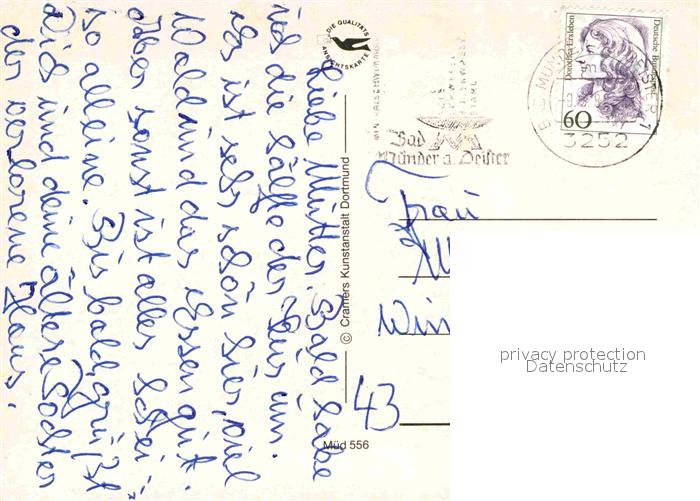 Liebe Mutter. Bald habe
ich die Hälfte der Kur um.
Es ist sehr schön hier, viel
Wald und das Essen gut.
Aber sonst ist alles schei-
so alleine. Bis bald, grüßt
Dich und deine ältere Tochter
der verlorene Hans.
DIE QUALITÄTS
ANSICHTSKARTE
© Cramers Kunstanstalt Dortmund
Müd 556
Bad
Münder a. Deister
3252
Dorothea Erxleben
Deutsche Bundespost
60
Frau
43
privacy protection
Datenschutz